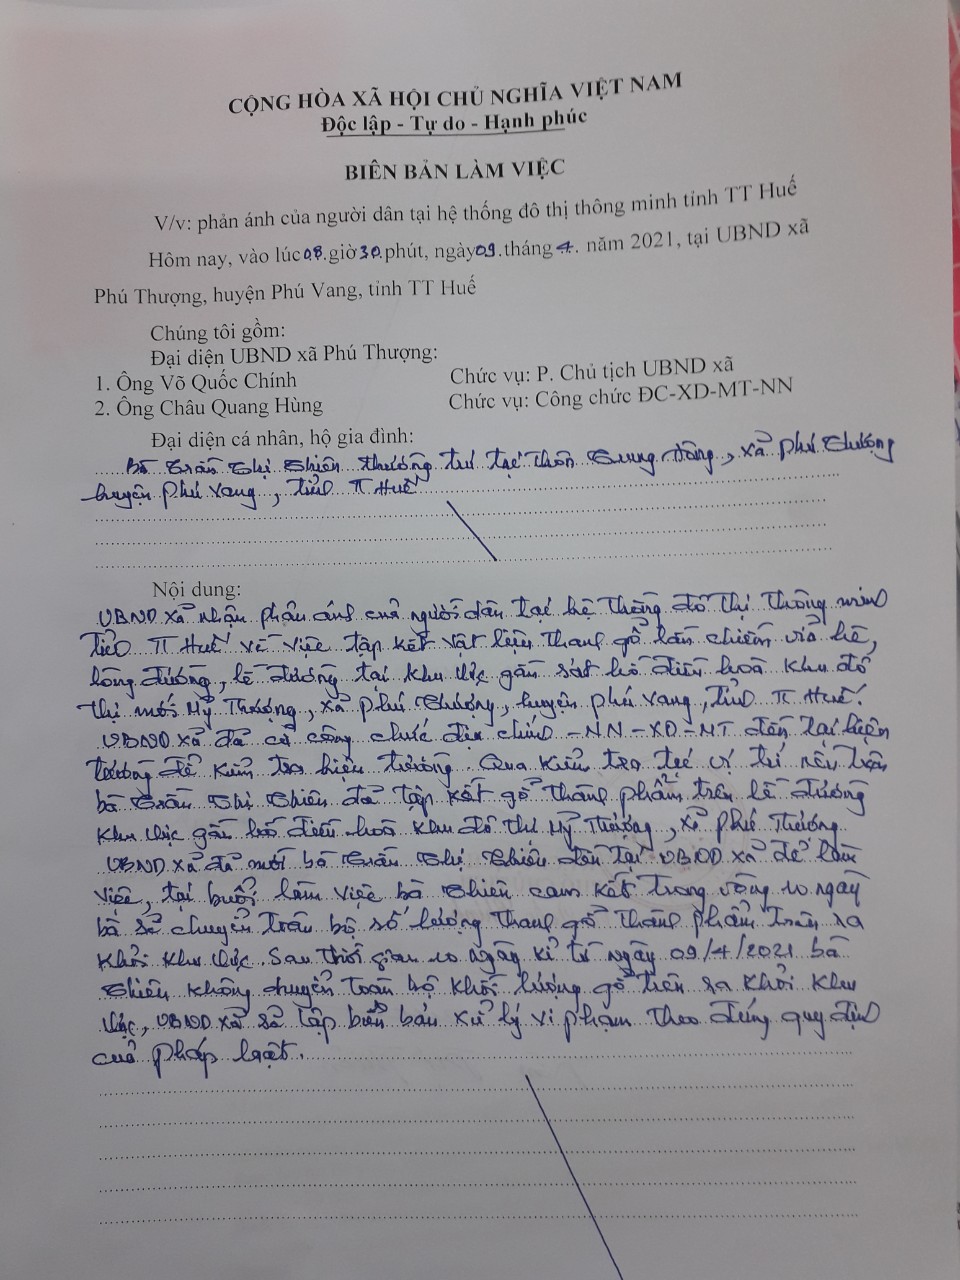 CỘNG HÒA XÃ HỘI CHỦ NGHĨA VIỆT NAM
Độc lập - Tự do - Hạnh phúc
BIÊN BẢN LÀM VIỆC
V/v: phản ánh của người dân tại hệ thống đô thị thông minh tỉnh TT Huế
Hôm nay, vào lúc 08 giờ 30 phút, ngày 09 tháng 4 năm 2021, tại UBND xã
Phú Thượng, huyện Phú Vang, tỉnh TT Huế
Chúng tôi gồm:
Đại diện UBND xã Phú Thượng:
1. Ông Võ Quốc Chính Chức vụ: P. Chủ tịch UBND xã
2. Ông Châu Quang Hùng Chức vụ: Công chức ĐC-XD-MT-NN
Đại diện cá nhân, hộ gia đình:
Bà Trần Thị Thiên thường trú tại thôn Trung Đông, xã Phú Thượng
huyện Phú Vang, tỉnh TT Huế
Nội dung:
UBND xã nhận phản ánh của người dân tại hệ thống đô thị thông minh
tỉnh TT Huế về việc tập kết vật liệu thanh gỗ lấn chiếm vỉa hè,
lòng đường, lề đường tại khu vực gần sát hồ điều hoà khu đô
thị mới Mỹ Thượng, xã Phú Thượng, huyện Phú Vang, tỉnh TT Huế.
UBND xã đã cử công chức địa chính -NN-XD-MT đến tại hiện
trường để kiểm tra hiện trường. Qua kiểm tra tại vị trí nêu trên
bà Trần Thị Thiên đã tập kết gỗ thành phẩm trên lề đường
khu vực gần hồ điều hoà khu đô thị Mỹ Thượng, xã Phú Thượng
UBND xã đã mời bà Trần Thị Thiên đến tại UBND xã để làm
việc, tại buổi làm việc bà Thiên cam kết trong vòng 10 ngày
bà sẽ chuyển toàn bộ số lượng thanh gỗ thành phẩm trên ra
khỏi khu vực. Sau thời gian 10 ngày kể từ ngày 09/4/2021 bà
Thiên không chuyển toàn bộ khối lượng gỗ trên ra khỏi khu
vực, UBND xã sẽ lập biên bản xử lý vi phạm theo đúng quy định
của pháp luật.